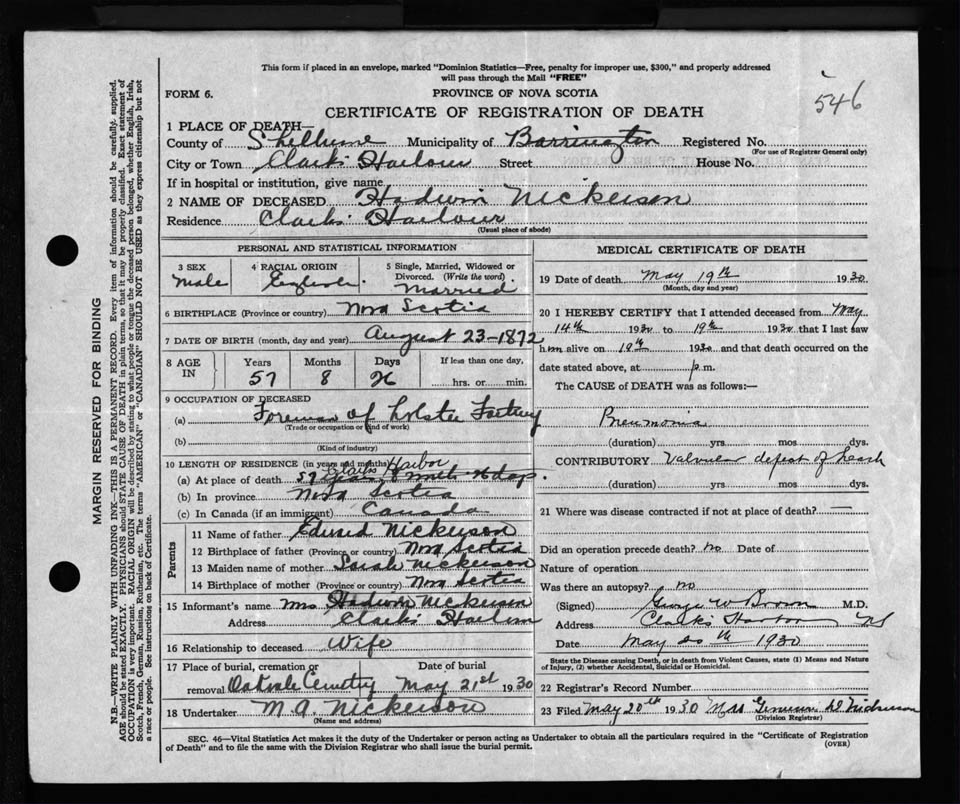 This form if placed in an envelope, marked "Dominion Statistics—Free, penalty for improper use, $300," and properly addressed
will pass through the Mail "FREE"
FORM 6.
PROVINCE OF NOVA SCOTIA
546
CERTIFICATE OF REGISTRATION OF DEATH
1 PLACE OF DEATH—
County of Shelburne Municipality of Barrington Registered No.
(For use of Registrar General only)
City or Town Clarks Harbour Street House No.
If in hospital or institution, give name
2 NAME OF DECEASED Hadwin Nickerson
Residence Clarks Harbour
(Usual place of abode)
PERSONAL AND STATISTICAL INFORMATION
3 SEX 4 RACIAL ORIGIN 5 Single, Married, Widowed or
Divorced. (Write the word)
Male English. Married
6 BIRTHPLACE (Province or country) Nova Scotia
7 DATE OF BIRTH (month, day and year) August 23-1872
8 AGE IN Years Months Days If less than one day,
57 8 26 hrs. or min.
9 OCCUPATION OF DECEASED
(a) Foreman of Lobster Factory
(Trade or occupation or kind of work)
(b)
(Kind of industry)
10 LENGTH OF RESIDENCE (in years and months) Clarks Harbor
(a) At place of death 57 years 8 month 26 days
(b) In province Nova Scotia
(c) In Canada (if an immigrant) Canada
Parents
11 Name of father Edward Nickerson
12 Birthplace of father (Province or country) Nova Scotia
13 Maiden name of mother Sarah Nickerson
14 Birthplace of mother (Province or country) Nova Scotia
15 Informant's name Mrs Hadwin Nickerson
Address Clarks Harbour
16 Relationship to deceased Wife
17 Place of burial, cremation or Date of burial
removal Cemetry May 21st 1930
18 Undertaker M. A. Nickerson
(Name and address)
MEDICAL CERTIFICATE OF DEATH
19 Date of death May 19th 1930
(Month, day and year)
20 I HEREBY CERTIFY that I attended deceased from May
14th 1930 to 19th 1930 that I last saw
him alive on 19th 1930 and that death occurred on the
date stated above, at p.m.
The CAUSE of DEATH was as follows:—
Pneumonia
(duration) yrs. mos. dys.
CONTRIBUTORY Valvular defect of heart
(duration) yrs. mos. dys.
21 Where was disease contracted if not at place of death? —
Did an operation precede death? no Date of
Nature of operation
Was there an autopsy? no
(Signed) George W Brown M.D.
Address Clarks Harbor NS
Date May 20th 1930
State the Disease causing Death, or in death from Violent Causes, state (1) Means and Nature
of Injury, (2) whether Accidental, Suicidal or Homicidal.
22 Registrar's Record Number
23 Filed May 20th 1930 Mrs Nickerson
(Division Registrar)
SEC. 46—Vital Statistics Act makes it the duty of the Undertaker or person acting as Undertaker to obtain all the particulars required in the "Certificate of Registration
of Death" and to file the same with the Division Registrar who shall issue the burial permit.
(OVER)
MARGIN RESERVED FOR BINDING
N.B.—WRITE PLAINLY WITH UNFADING INK—THIS IS A PERMANENT RECORD. Every item of information should be carefully supplied.
AGE should be stated EXACTLY. PHYSICIANS should STATE CAUSE OF DEATH in plain terms, so that it may be properly classified. Exact statement of
OCCUPATION is very important. RACIAL ORIGIN will be described by stating to what people or tongue the deceased person belonged, whether English, Irish,
Scotch, French, German, Russian, Ruthenian, etc. The terms "AMERICAN" or "CANADIAN" SHOULD NOT BE USED as they express citizenship but not
a race or people. See instructions on back of Certificate.